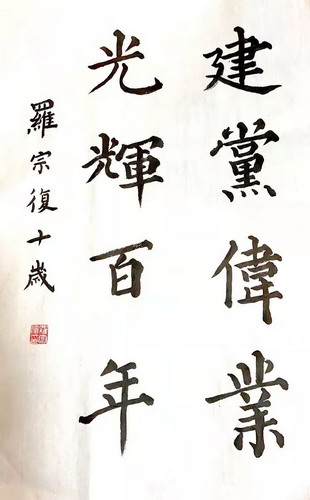 建黨偉業
光輝百年
羅宗復十歲